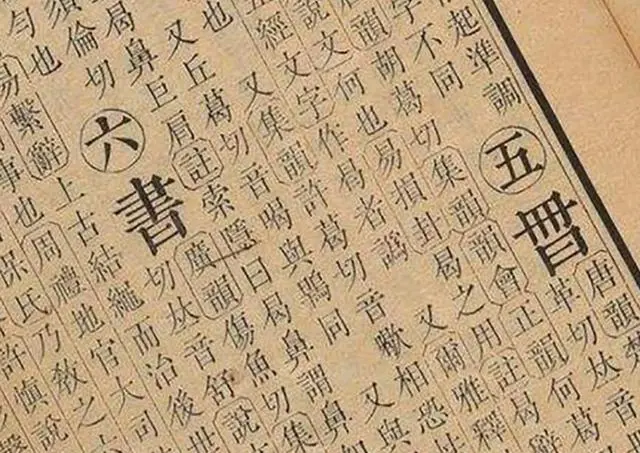 起準調
五
唐韻
革切𠀤音
字不同
韻胡葛切集韻韻會正韻何葛
說文何也易損卦曷之用註曷辭
經文字作曷者譌又爾雅釋
又集韻許葛切音歇相恐
又丘葛切音喝與鶡同又與
曷鼻巨肩註索隱曰曷鼻謂鼻
須倫切
六
書
廣韻傷魚切集
匀也
切𠀤音舒說
易繫辭上古結繩而治後世
事也周禮地官大司
保氏乃敎之六
許慎說